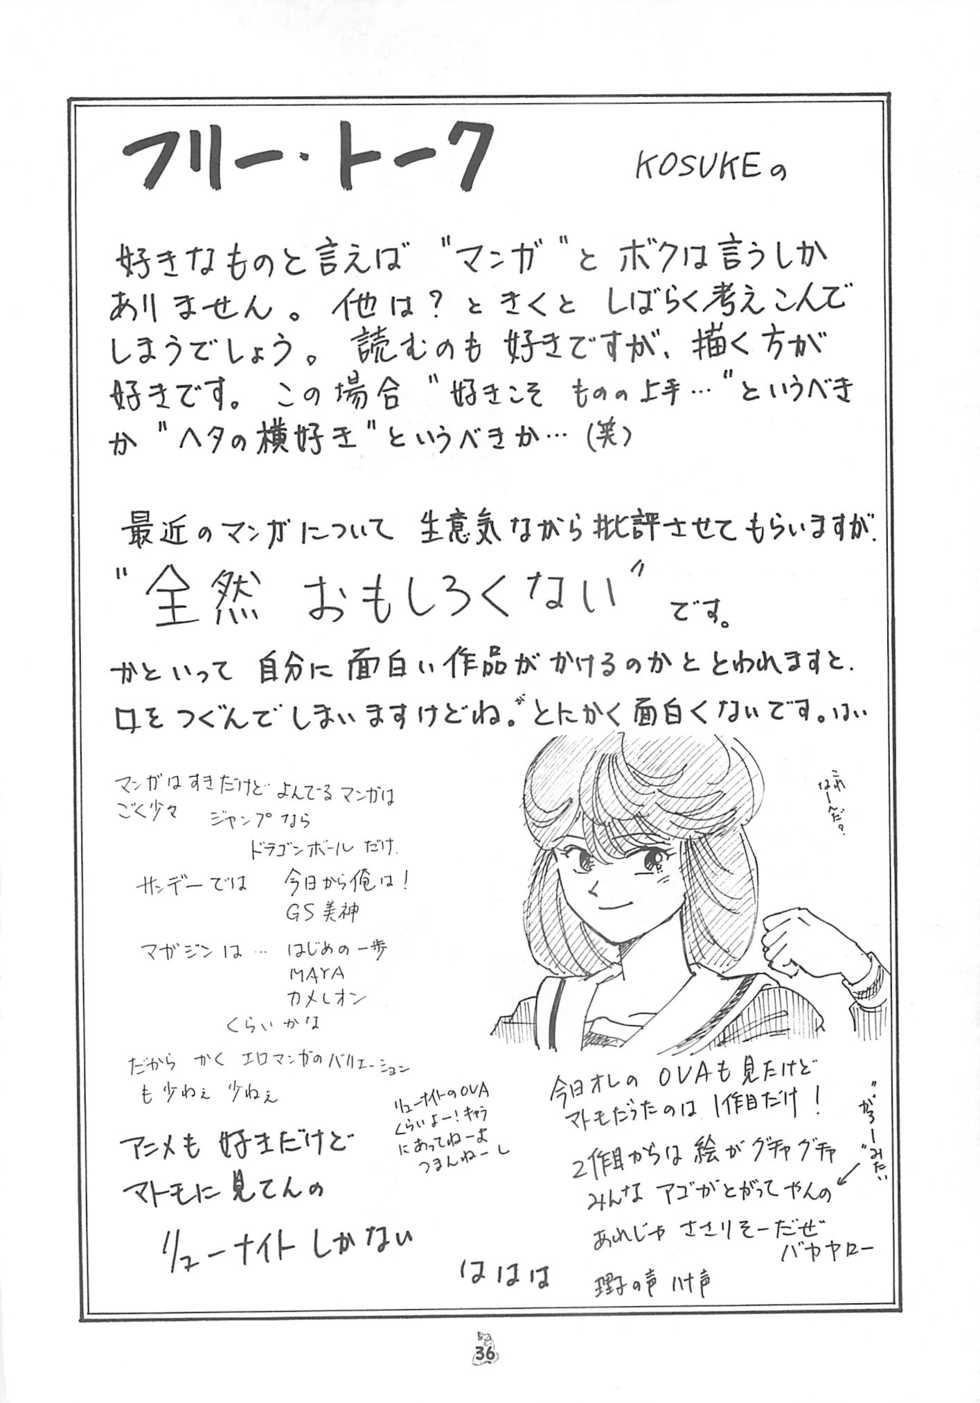 フリー・トーク
KOSUKEの
好きなものと言えば "マンガ" と ボクは言うしか
ありません。他は？ときくと しばらく考えこんで
しまうでしょう。読むのも好きですが、描く方が
好きです。この場合 "好きこそ ものの上手…" というべき
か "ヘタの横好き" というべきか…(笑)
最近のマンガについて 生意気ながら批評させてもらいますが、
"全然 おもしろくない" です。
かといって 自分に面白い作品がかけるのかと とわれますと、
口をつぐんでしまいますけどね。が とにかく面白くないです。はい
マンガはすきだけど よんでるマンガは
ごく少々 ジャンプなら
ドラゴンボールだけ.
サンデーでは 今日から俺は！
GS美神
マガジンは… はじめの一歩
MAYA
カメレオン
くらいかな
だから かく エロマンガのバリエーション
も少ねぇ 少ねぇ
アニメも 好きだけど
マトモに見てんの
リューナイトしかない
リューナイトのOVA
くらいよー！キャラ
にあってねーよ
つまんねーし
ははは
これ
なーんだ？
今日オレの OVAも見たけど
マトモだったのは 1作目だけ！
2作目からは 絵が グチャグチャ
みんな アゴがとがってやんの
"がろーみたい"
あれじゃ ささりそーだぜ
バカヤロー
理子の声 ハナ声
36